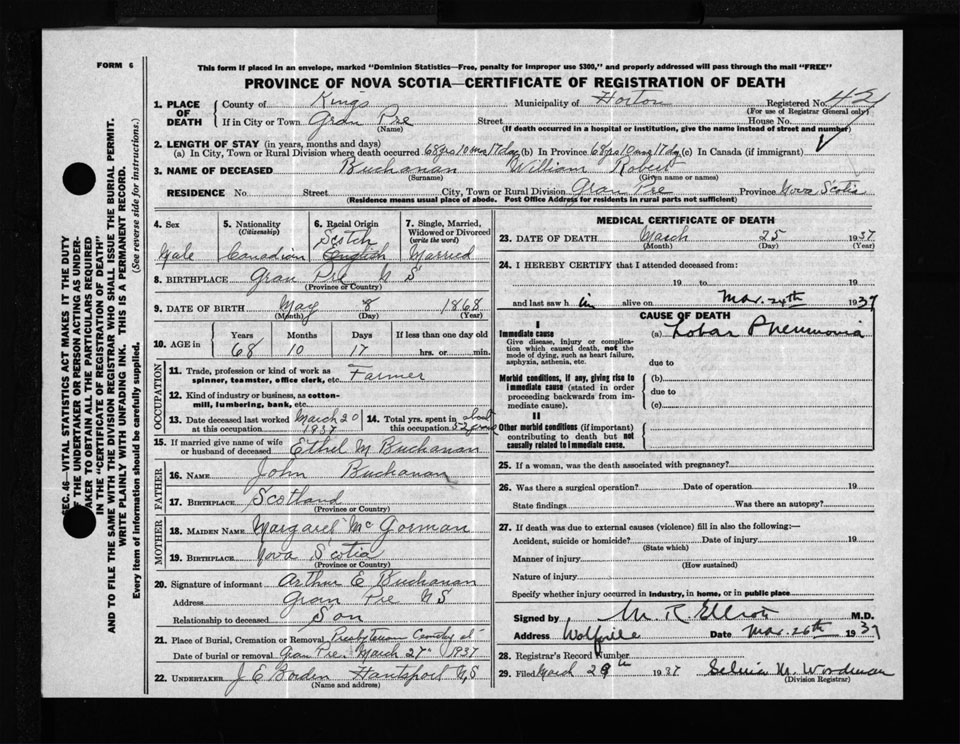 FORM 6
This form if placed in an envelope, marked "Dominion Statistics—Free, penalty for improper use $300," and properly addressed will pass through the mail "FREE"
PROVINCE OF NOVA SCOTIA—CERTIFICATE OF REGISTRATION OF DEATH
1. PLACE OF DEATH
County of Kings Municipality of Horton Registered No.
(For use of Registrar General only)
If in City or Town Gran Pre Street House No.
(Name) (If death occurred in a hospital or institution, give the name instead of street and number)
2. LENGTH OF STAY (in years, months and days)
(a) In City, Town or Rural Division where death occurred 68yrs 10mos 17day (b) In Province 68yrs 10mos 17dy (c) In Canada (if immigrant)
3. NAME OF DECEASED Buchanan William Robert
(Surname) (Given name or names)
RESIDENCE No Street City, Town or Rural Division Gran Pre Province Nova Scotia
(Residence means usual place of abode. Post Office Address for residents in rural parts not sufficient)
4. Sex
Male
5. Nationality
(Citizenship)
Canadian
6. Racial Origin
Scotch
English
7. Single, Married, Widowed or Divorced
(write the word)
Married
8. BIRTHPLACE Gran Pre N S
(Province or Country)
9. DATE OF BIRTH May 8 1868
(Month) (Day) (Year)
10. AGE in Years Months Days If less than one day old
68 10 17 hrs. or min.
OCCUPATION
11. Trade, profession or kind of work as spinner, teamster, office clerk, etc. Farmer
12. Kind of industry or business, as cotton-mill, lumbering, bank, etc.
13. Date deceased last worked at this occupation March 20 1937
14. Total yrs. spent in this occupation about 52 years
15. If married give name of wife or husband of deceased Ethel M Buchanan
FATHER
16. NAME John Buchanan
17. BIRTHPLACE Scotland
(Province or Country)
MOTHER
18. MAIDEN NAME Margaret McGorman
19. BIRTHPLACE Nova Scotia
(Province or Country)
20. Signature of informant Arthur E Buchanan
Address Gran Pre N S
Relationship to deceased Son
21. Place of Burial, Cremation or Removal Presbyterian Cemetry at
Date of burial or removal Gran Pre March 27th 1937
22. UNDERTAKER J E Borden Hantsport N,S
(Name and address)
MEDICAL CERTIFICATE OF DEATH
23. DATE OF DEATH March 25 1937
(Month) (Day) (Year)
24. I HEREBY CERTIFY that I attended deceased from:
19 to 19
and last saw h im alive on Mar. 24th 1937
CAUSE OF DEATH
I
Immediate cause (a) Lobar Pneumonia
Give disease, injury or complication which caused death, not the mode of dying, such as heart failure, asphyxia, asthenia, etc.
due to
Morbid conditions, if any, giving rise to immediate cause (stated in order proceeding backwards from immediate cause).
(b)
due to
(c)
II
Other morbid conditions (if important) contributing to death but not causally related to immediate cause.
25. If a woman, was the death associated with pregnancy?
26. Was there a surgical operation? Date of operation 19
State findings Was there an autopsy?
27. If death was due to external causes (violence) fill in also the following:—
Accident, suicide or homicide? Date of injury 19
(State which)
Manner of injury
(How sustained)
Nature of injury
Specify whether injury occurred in industry, in home, or in public place
Signed by M R Elliott M.D.
Address Wolfville Date Mar. 26th 1937
28. Registrar's Record Number
29. Filed March 29th 1937 Selina M. Woodman
(Division Registrar)
SEC. 46—VITAL STATISTICS ACT MAKES IT THE DUTY
OF THE UNDERTAKER OR PERSON ACTING AS UNDER-
TAKER TO OBTAIN ALL THE PARTICULARS REQUIRED
IN THE "CERTIFICATE OF REGISTRATION OF DEATH"
AND TO FILE THE SAME WITH THE DIVISION REGISTRAR WHO SHALL ISSUE THE BURIAL PERMIT.
WRITE PLAINLY WITH UNFADING INK. THIS IS A PERMANENT RECORD.
Every item of information should be carefully supplied. (See reverse side for instructions.)